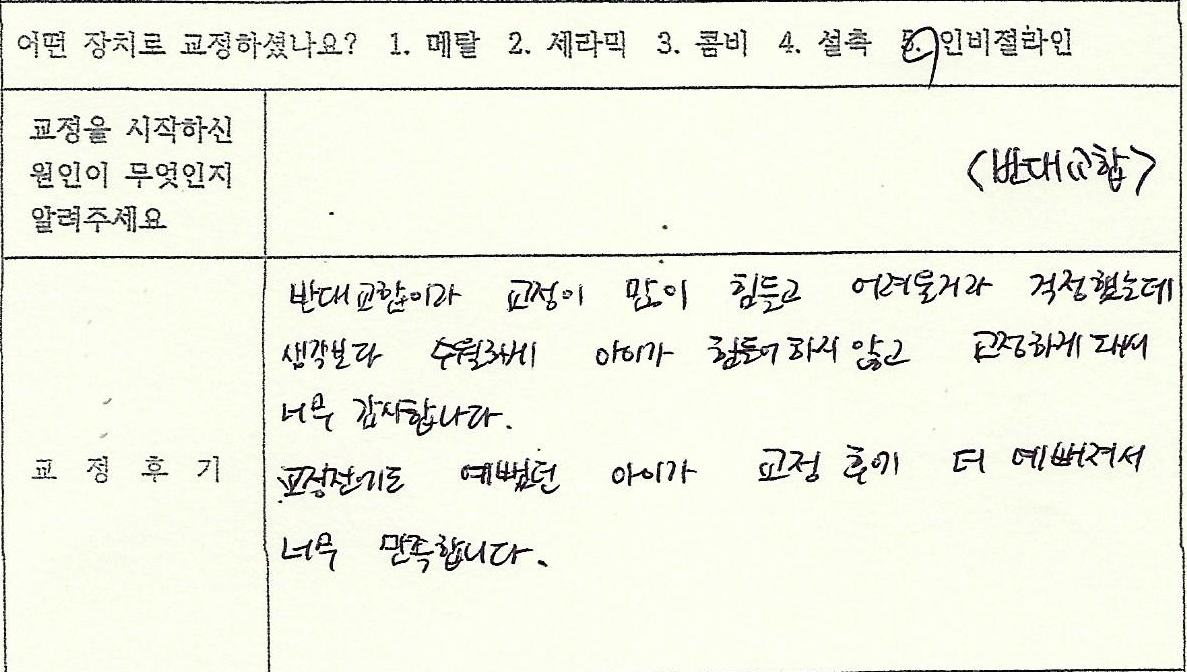 어떤 장치로 교정하셨나요? 1. 메탈 2. 세라믹 3. 콤비 4. 설측 5. 인비절라인
교정을 시작하신
원인이 무엇인지
알려주세요
<반대교합>
교 정 후 기
반대교합이라 교정이 많이 힘들고 어려울거라 걱정했는데
생각보다 수월하게 아이가 힘들어하지 않고 교정하게 돼서
너무 감사합니다.
교정전에도 예뻤던 아이가 교정 후에 더 예뻐져서
너무 만족합니다.